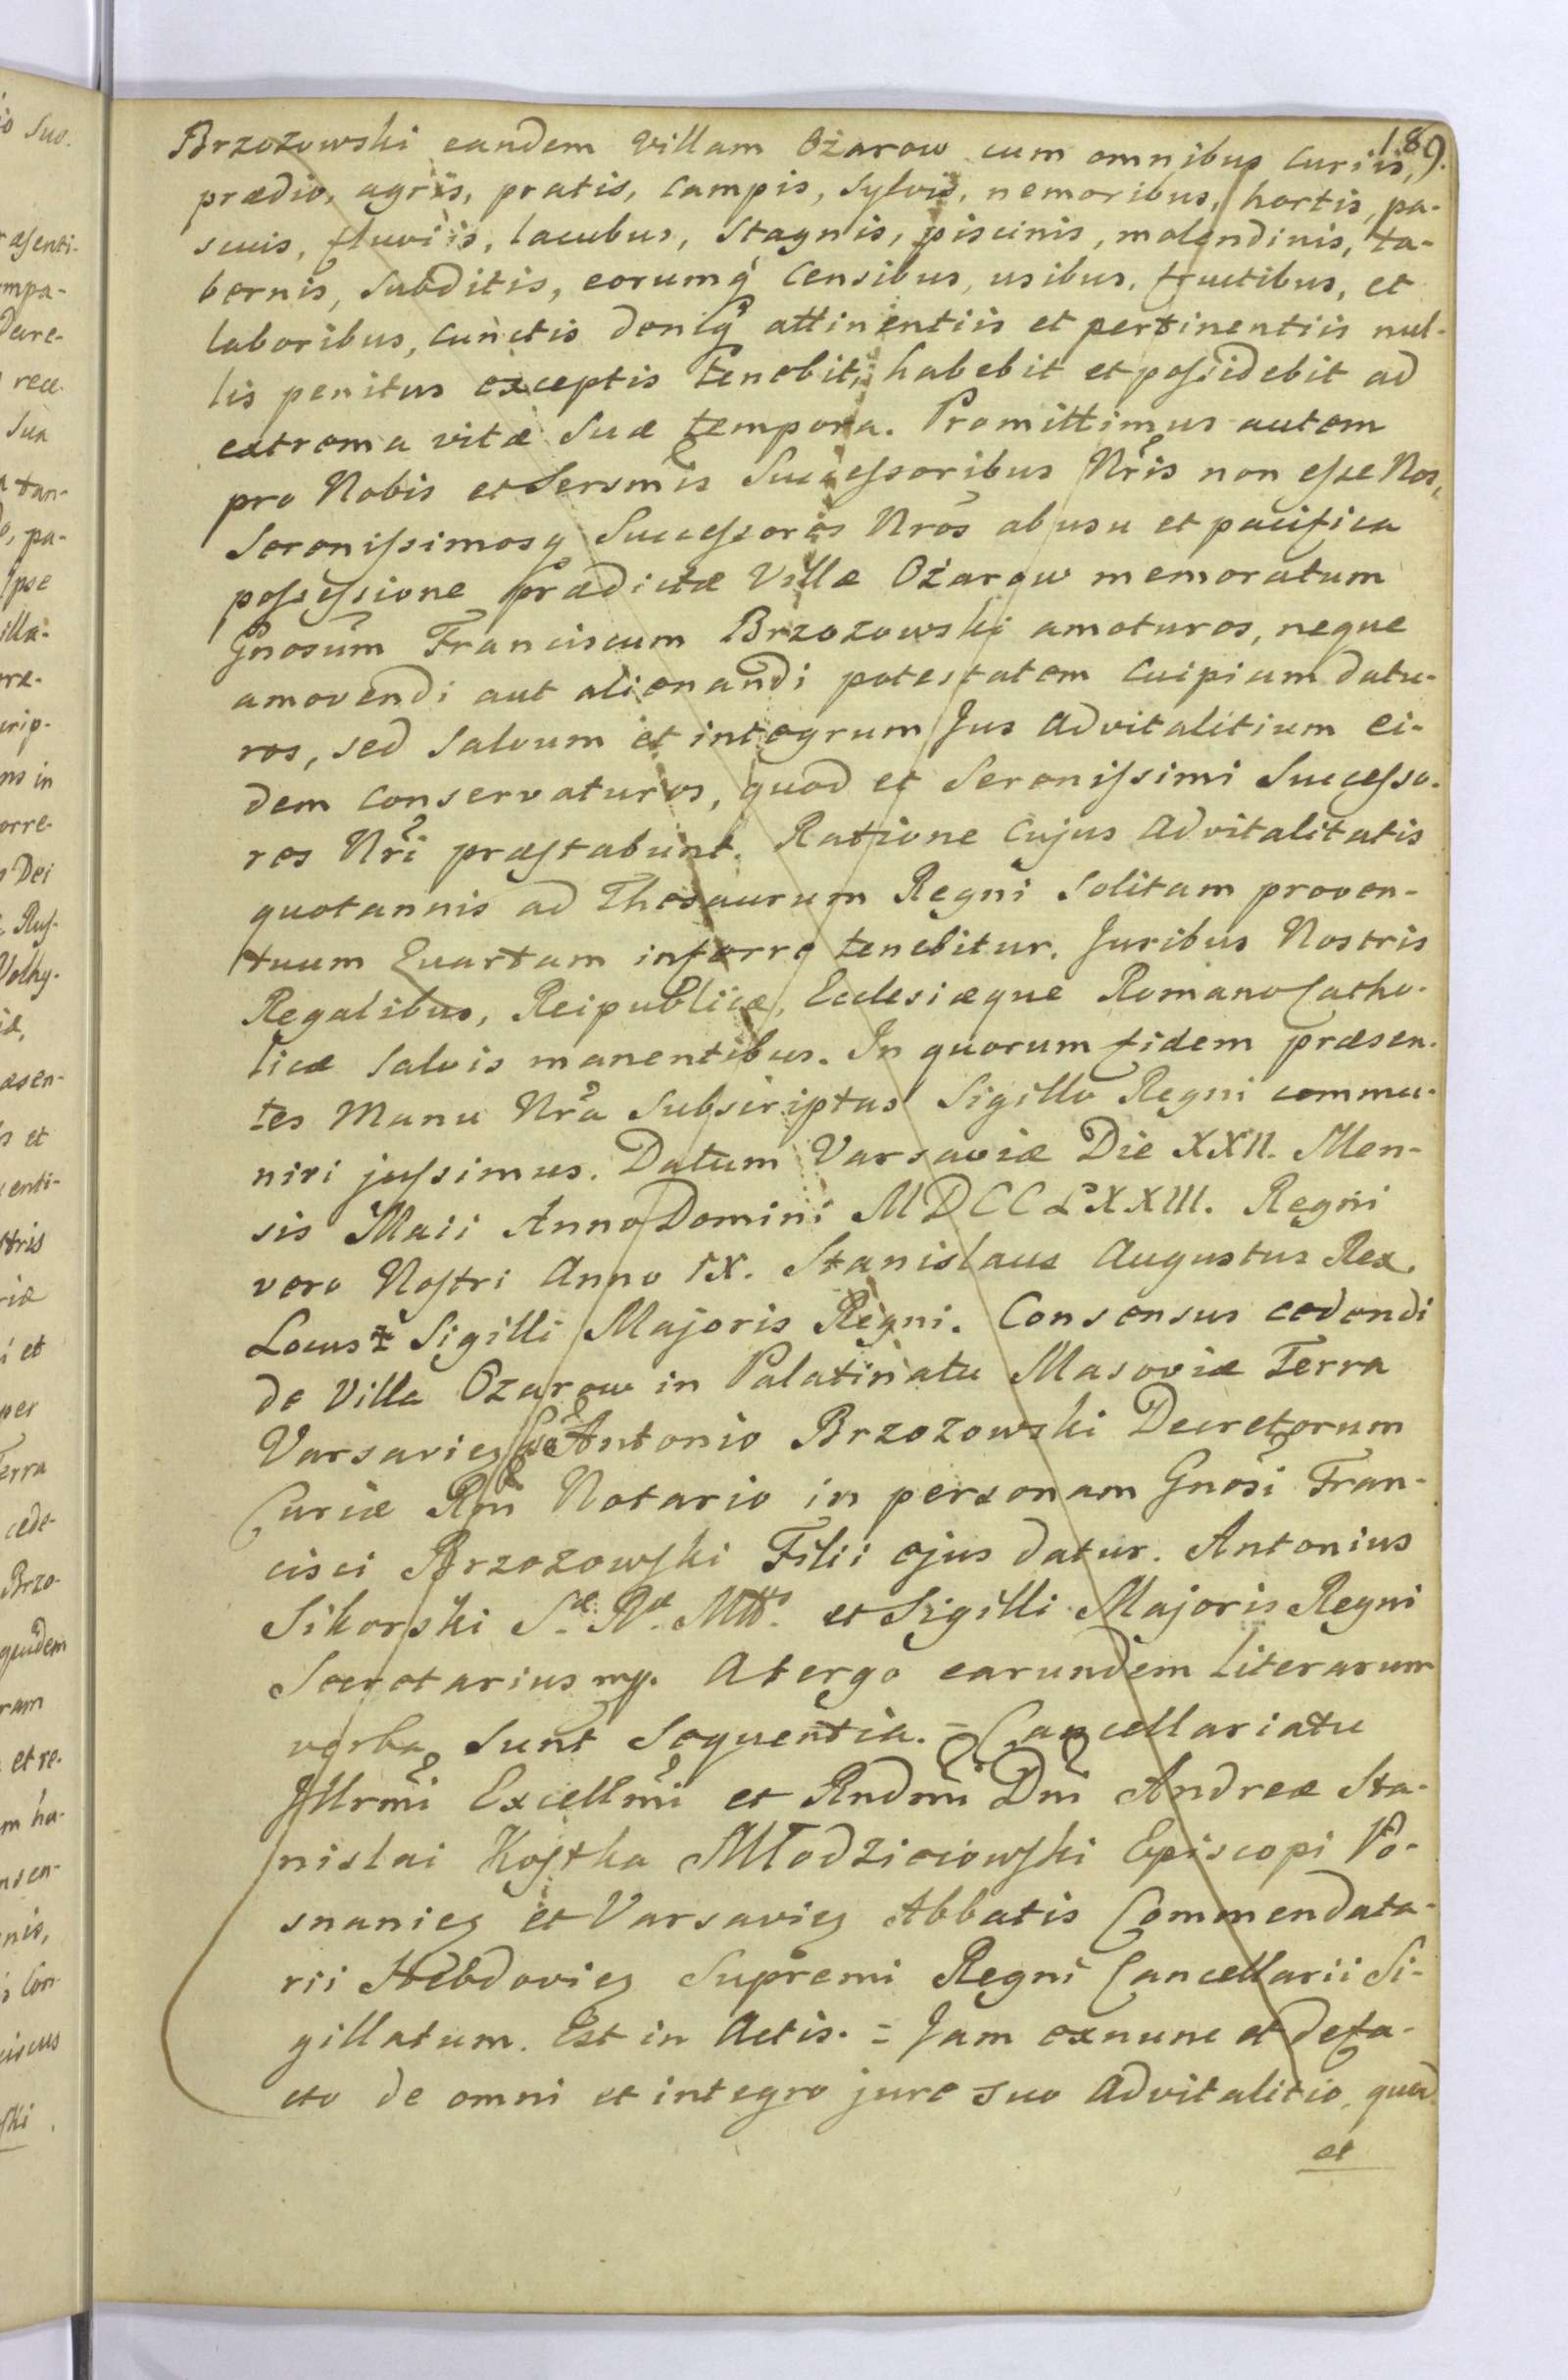 189.
Brzozowski eandem Villam Ożarow cum omnibus Curiis,
prædio, agris, pratis, campis, Sylvis, nemoribus, hortis, pa-
scuis, fluviis, lacubus, Stagnis, piscinis, molendinis, ta-
bernis, Subditis, eorumq́ Censibus, usibus, fructibus, et
laboribus, cunctis deniq́ attinentiis et pertinentiis nul-
lis penitus exceptis tenebit, habebit et poſsidebit ad
extrema vitæ Suæ tempora. Promittimus autem
pro Nobis et Sersmis Succeſsoribus Nr̃is non eſse Nos,
Sereniſsimosq Succeſsores Nrõs ab usu et pacifica
poſseſsione prædictæ Villæ Ożarow memoratum
Gnosum̃ Franciscum Brzozowski amoturos, neque
amovendi aut alienandi potestatem cuipiam datu-
ros, sed Salvum et integrum Jus Advitalitium ei-
dem conservaturos, quod et Sereniſsimi Succeſso-
res Nr̃i præſtabunt. Ratione Cujus Advitalitatis
quotannis ad Thesaurum Regni Solitam proven-
tuum Quartam inferre tenebitur. Juribus Nostris
Regalibus, Reipublicæ, Ecclesiæque Romano Catho-
licæ Salvis manentibus. In quorum fidem præsen-
tes Manu Nr̃a Subscriptas Sigillo Regni commu-
niri juſsimus. Datum Varsaviæ Die XXII. Men-
sis Maii Anno Domini MDCCLXXIII. Regni
vero Noſtri Anno IX. Stanislaus Augustus Rex.
Locus Sigilli Majoris Regni. Consensus cedendi
de Villa Ozarow in Palatinatu Masoviæ Terra
Antonio Brzozowski Decretorum
Curiæ Notario in personam Gnosi Fran-
cisci Brzozowſki Filii ejus datur. Antonius
Sikorski S.æ R.æ Mttis et Sigilli Majoris Regni
Secretarius mp. A tergo earundem Literarum
verba Sunt Sequentia. = Cancellariatu
Jllrmi Excellmi et Rndmi Dni Andreæ Sta-
nislai Koſtka Młodzieiowſki Episcopi Po-
snanieꝫ et Varsavieꝫ Abbatis Commendata-
rii Hebdovieꝫ Supremi Regni Cancellarii Si-
gillatum. Est in Actis. = Jam exnunc et defa-
cto de omni et integro jure suo Advitalitio, quod
et